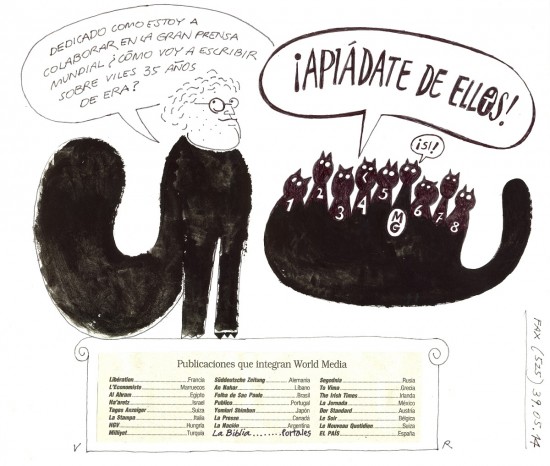 DEDICADO COMO ESTOY A
COLABORAR EN LA GRAN PRENSA
MUNDIAL ¿CÓMO VOY A ESCRIBIR
SOBRE VILES 35 AÑOS
DE ERA?
¡APIÁDATE DE ELLOS!
¡SI!
1 2 3 4 5 6 7 8
MG
Publicaciones que integran World Media
Libération Francia
L'Economiste Marruecos
Al Ahram Egipto
Ha'aretz Israel
Tages Anzeiger Suiza
La Stampa Italia
HGV Hungría
Milliyet Turquía
Süddeutsche Zeitung Alemania
An Nahar Líbano
Folha de Sao Paulo Brasil
Publico Portugal
Yomiuri Shimbun Japón
La Presse Canadá
La Nación Argentina
La Biblia........Portales
Segodnia Rusia
To Vima Grecia
The Irish Times Irlanda
La Jornada México
Der Standard Austria
Le Soir Bélgica
Le Nouveau Quotidien Suiza
EL PAÍS España
V R
FAX (525)